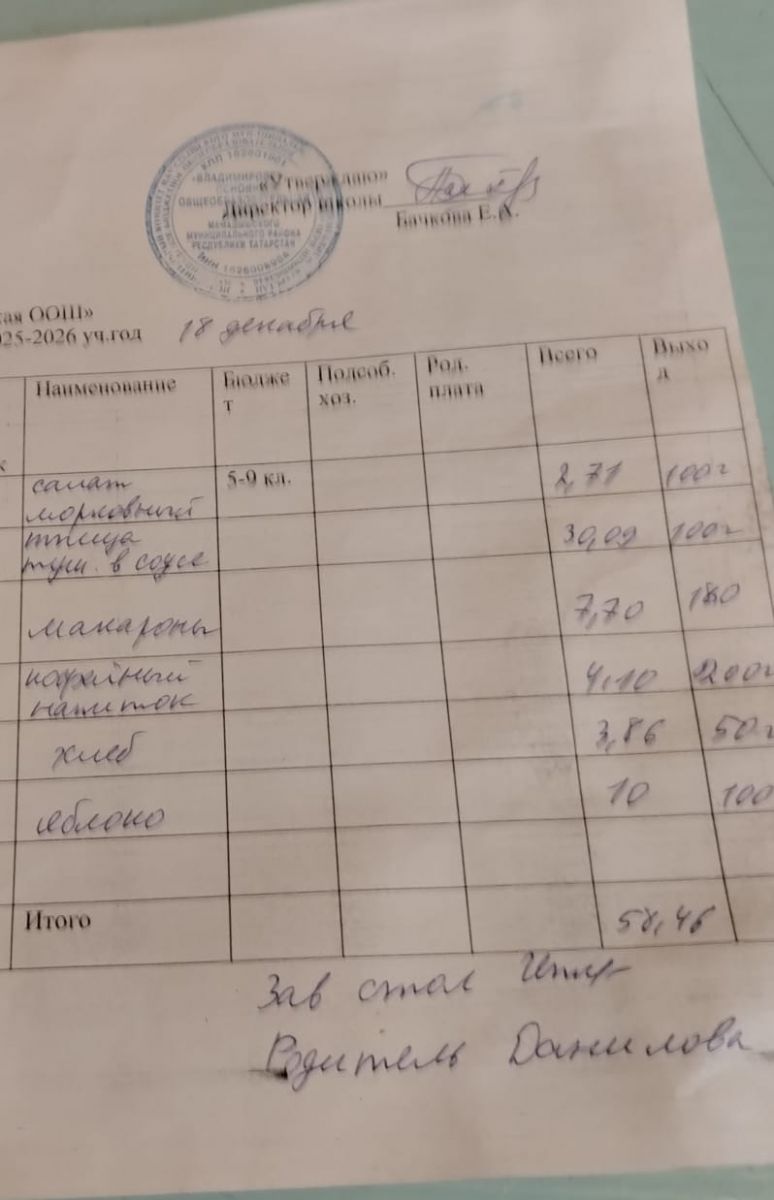 «Утверждаю»
Директор школы
Бачкова Е.А.
КПП 162601001
«ВЛАДИМИРОВСКАЯ
ОСНОВНАЯ
МАМАДЫШСКОГО
МУНИЦИПАЛЬНОГО РАЙОНА
РЕСПУБЛИКИ ТАТАРСТАН
кая ООШ»
025-2026 уч.год 18 декабря
Наименование Бюдже Подсоб. Род. Всего Выхо
т хоз. плата д
к
салат 5-9 кл. 2,71 100г
морковный
птица 30,09 100г
туш. в соусе
макароны 7,70 180
кофейный 4,10 200г
напиток
хлеб 3,86 50г
яблоко 10 100
Итого 58,46
Зав стол
Родитель Данилова